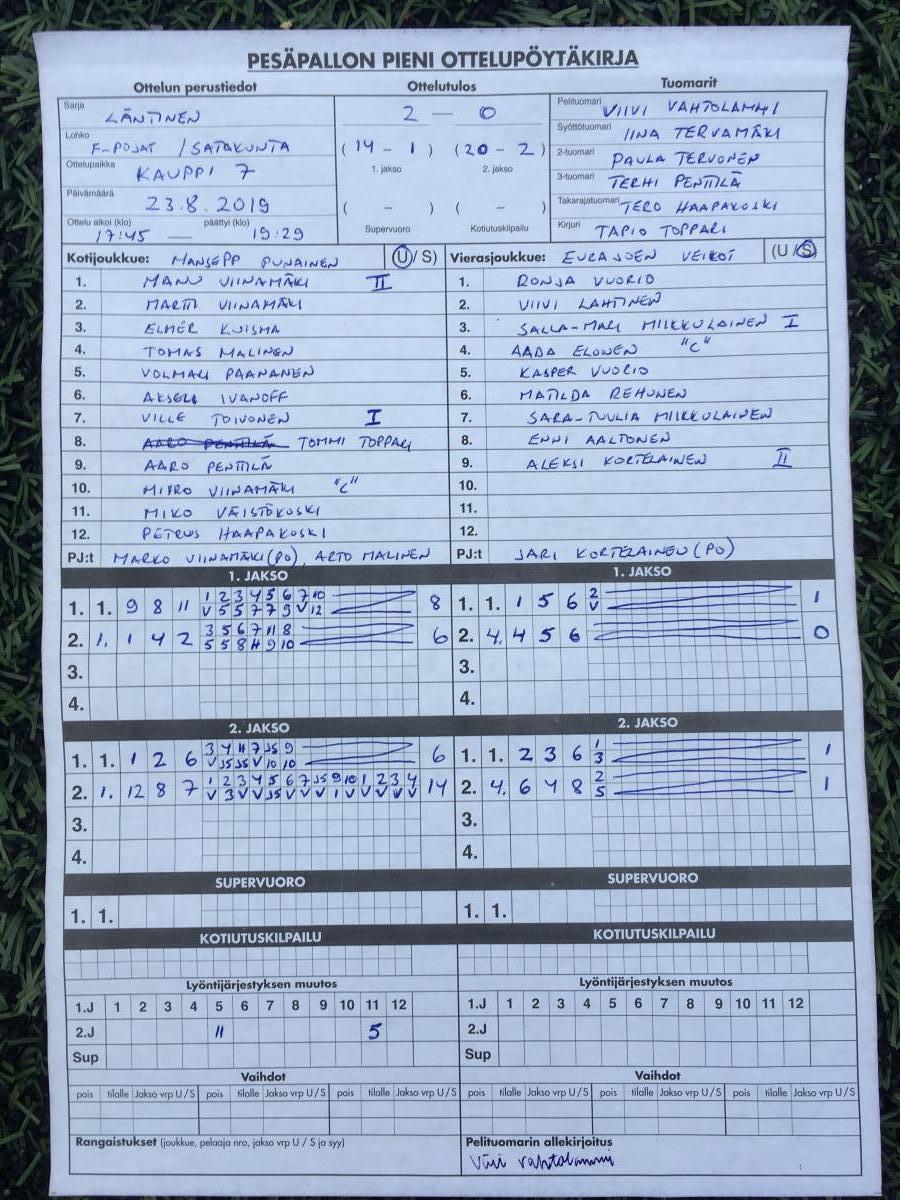 PESÄPALLON PIENI OTTELUPÖYTÄKIRJA
Ottelun perustiedot Ottelutulos Tuomarit
Sarja LÄNTINEN
Lohko F-POJAT / SATAKUNTA
Ottelupaikka KAUPPI 7
Päivämäärä 23.8.2019
Ottelu alkoi (klo) päättyi (klo)
17:45 — 19:29
2 — 0
(14 - 1) (20 - 2)
1. jakso 2. jakso
( - ) ( - )
Supervuoro Kotiutuskilpailu
Pelituomari VIIVI VAHTOLAMMI
Syöttötuomari IINA TERVAMÄKI
2-tuomari PAULA TERVONEN
3-tuomari TERHI PENTTILÄ
Takarajatuomari TERO HAAPAKOSKI
Kirjuri TAPIO TOPPARI
Kotijoukkue: MANSEPP PUNAINEN (U/S)
1. MANU VIINAMÄKI II
2. MARTTI VIINAMÄKI
3. ELMER KUISMA
4. TOMAS MALINEN
5. VOLMARI PAANANEN
6. AKSELI IVANOFF
7. VILLE TOIVONEN I
8. AARO PENTTILÄ TOMMI TOPPARI
9. AARO PENTTILÄ
10. MIRO VIINAMÄKI "C"
11. MIKO VÄISTÖKOSKI
12. PETRUS HAAPAKOSKI
PJ:t MARKO VIINAMÄKI (PO), ARTO MALINEN
Vierasjoukkue: EURAJOEN VEIKOT (U/S)
1. RONJA VUORIO
2. VIIVI LAHTINEN
3. SALLA-MARI MIIKKULAINEN I
4. AADA ELONEN "C"
5. KASPER VUORIO
6. MATILDA REHUNEN
7. SARA-TUULIA MIIKKULAINEN
8. ENNI AALTONEN
9. ALEKSI KORTELAINEN II
10.
11.
12.
PJ:t JARI KORTELAINEN (PO)
1. JAKSO
1. 1. 9 8 11 1 2 3 4 5 6 7 10 8
V 5 5 7 7 9 V 12
2. 1. 1 4 2 3 5 6 7 11 8 6
5 5 8 11 9 10
3.
4.
1. JAKSO
1. 1. 1 5 6 2 1
V
2. 4. 4 5 6 0
3.
4.
2. JAKSO
1. 1. 1 2 6 3 4 11 7 JS 9 6
V JS JS V 10 10
2. 1. 12 8 7 1 2 3 4 5 6 7 JS 9 10 1 2 3 4 14
3.
4.
2. JAKSO
1. 1. 2 3 6 1 1
3
2. 4. 6 4 8 2 1
5
3.
4.
SUPERVUORO SUPERVUORO
1. 1. 1. 1.
KOTIUTUSKILPAILU KOTIUTUSKILPAILU
Lyöntijärjestyksen muutos Lyöntijärjestyksen muutos
1.J 1 2 3 4 5 6 7 8 9 10 11 12 1.J 1 2 3 4 5 6 7 8 9 10 11 12
2.J 11 5 2.J
Sup Sup
Vaihdot Vaihdot
pois tilalle Jakso vrp U/S pois tilalle Jakso vrp U/S pois tilalle Jakso vrp U/S pois tilalle Jakso vrp U/S pois tilalle Jakso vrp U/S pois tilalle Jakso vrp U/S
Rangaistukset (joukkue, pelaaja nro, jakso vrp U / S ja syy) Pelituomarin allekirjoitus
Viivi Vahtolammi